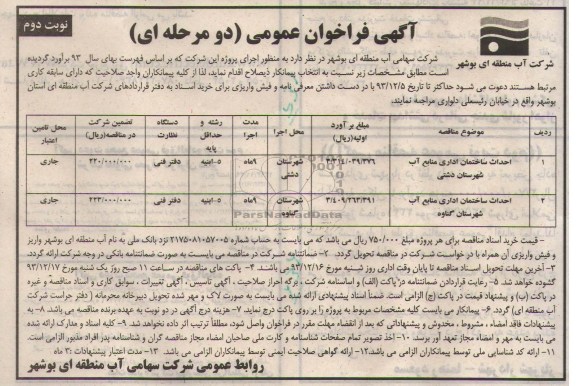 نوبت دوم
آگهی فراخوان عمومی (دو مرحله ای)
شرکت آب منطقه ای بوشهر
شرکت سهامی آب منطقه ای بوشهر در نظر دارد به منظور اجرای پروژه این شرکت که بر اساس فهرست بهای سال ۹۳ برآورد گردیده
است مطابق مشخصات زیر نسبت به انتخاب پیمانکار ذیصلاح اقدام نماید، لذا از کلیه پیمانکاران واجد صلاحیت که دارای سابقه کاری
مرتبط هستند دعوت می شود حداکثر تا تاریخ ۹۳/۱۲/۵ با در دست داشتن معرفی نامه و فیش واریزی برای خرید اسناد به دفتر قراردادهای شرکت آب منطقه ای استان
بوشهر واقع در خیابان رئیسعلی دلواری مراجعه نمایند.
ردیف موضوع مناقصه مبلغ بر آورد اولیه(ریال) محل اجرا مدت اجرا رشته و حداقل پایه دستگاه نظارت تضمین شرکت در مناقصه(ریال) محل تامین اعتبار
۱ احداث ساختمان اداری منابع آب شهرستان دشتی ۴/۳۱۴/۰۳۹/۳۷۶ شهرستان دشتی ۹ماه ۵-ابنیه دفتر فنی ۲۲۰/۰۰۰/۰۰۰ جاری
۲ احداث ساختمان اداری منابع آب شهرستان گناوه ۴/۴۰۹/۲۹۳/۳۹۱ شهرستان گناوه ۹ماه ۵-ابنیه دفتر فنی ۲۲۳/۰۰۰/۰۰۰ جاری
ParsNamadData
۱- قیمت خرید اسناد مناقصه برای هر پروژه مبلغ ۷۵۰/۰۰۰ ریال می باشد که می بایست به حساب شماره ۲۱۷۵۰۸۱۰۵۷۰۰۵ نزد بانک ملی به نام آب منطقه ای بوشهر واریز
و فیش واریزی آن همراه با درخواست شرکت در مناقصه تحویل گردد. ۲- ضمانتنامه شرکت در مناقصه می بایست به صورت ضمانتنامه بانکی در وجه شرکت ارائه گردد.
۳- آخرین مهلت تحویل اسناد مناقصه تا پایان وقت اداری روز شنبه مورخ ۹۳/۱۲/۱۶ می باشد. ۴- پاکت های مناقصه در ساعت ۱۱ صبح روز یک شنبه مورخ ۹۳/۱۲/۱۷
گشوده خواهد شد. ۵- رعایت قراردادن ضمانتنامه در پاکت (الف) و اساسنامه شرکت، برگه احراز صلاحیت، آگهی تاسیس، آگهی تغییرات، سوابق کاری و اسناد مناقصه و غیره
در پاکت (ب) و پیشنهاد قیمت در پاکت (ج) الزامی است. ضمناً اسناد پیشنهادی ارائه شده می بایست به صورت لاک و مهر شده تحویل دبیرخانه محرمانه (دفتر حراست شرکت
آب منطقه ای) گردد. ۶- پیمانکار می بایست کلیه مشخصات مربوط به پروژه را بر روی پاکت درج نماید. ۷- هزینه درج آگهی در دو نوبت به عهده برنده مناقصه می باشد. ۸- به
پیشنهادات فاقد امضاء، مشروط، مخدوش و پیشنهاداتی که بعد از انقضاء مهلت مقرر در فراخوان واصل شود، مطلقاً ترتیب اثر داده نخواهد شد. ۹- کلیه اسناد و مدارک ارائه شده
می بایست به مهر و امضاء مجاز تعهد آور برسد. ۱۰- اخذ تصویر تمام صفحات شناسنامه و کارت ملی صاحبان امضاء مجاز مناقصه گران و شناسنامه پدر افراد مذبور الزامی است.
۱۱- ارائه کد شناسایی ملی توسط پیمانکاران الزامی می باشد. ۱۲- ارائه گواهی صلاحیت ایمنی توسط پیمانکاران الزامی می باشد. ۱۳- مدت اعتبار پیشنهادات: ۳ ماه
روابط عمومی شرکت سهامی آب منطقه ای بوشهر